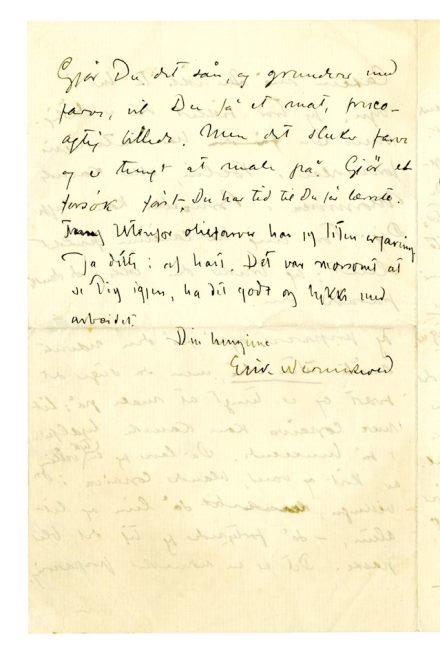 Gjør Du det sån, og grunderer med
farve, vil Du få et mat, fresco-
agtig billede. Men det sluker farve
og er tungt at male på. Gjör et
forsök först, Du har tid til Du får lærret.
Utenfor oliefarver har jeg liten erfaring
Ja dette i al hast. Det var morsomt at
se Dig igjen, ha det godt og lykke med
arbeidet.
Din hengivne
Erik Werenskiold